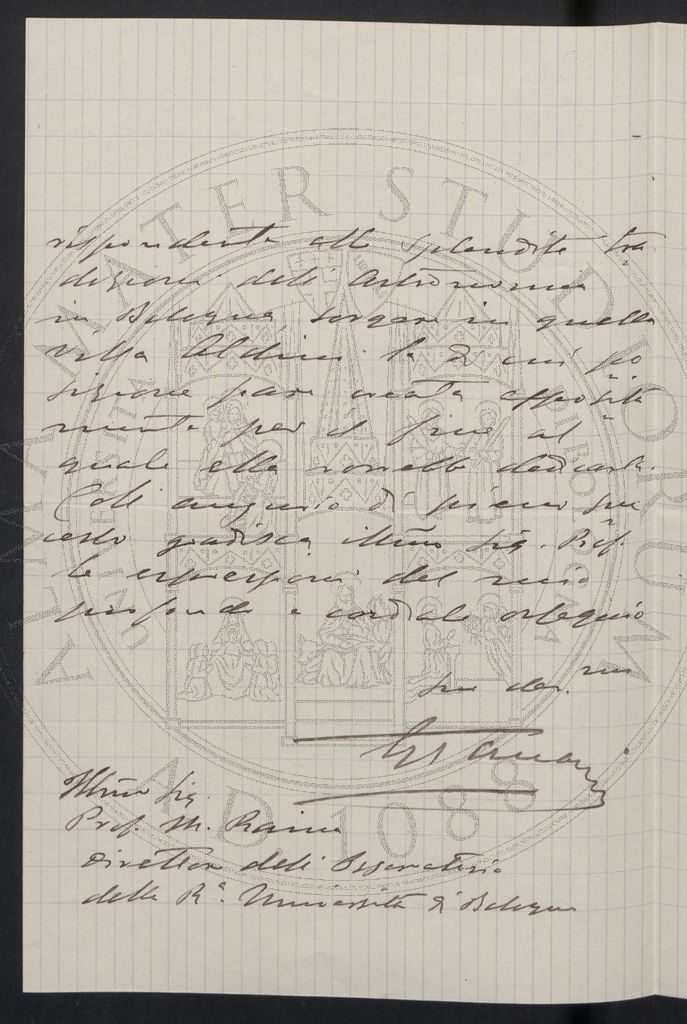 rispondente alle splendite tra
dizioni dell' Astronomia
in Bologna, sorgere in quella
villa Aldini la di cui po
sizione pare creata apposita
mente per il fine al
quale ella vorrebbe dedicarla.
Coll' augurio di pieno suc
cesso gradisca Illmo Sig. Prof.
le espressioni del mio
profondo e cordiale ossequio
Suo dev.mo
Illmo Sig.
Prof. M. Rajna
Direttore dell' Osservatorio
della Ra. Università di Bologna
ALMA MATER STUDIORUM
A.D. 1088